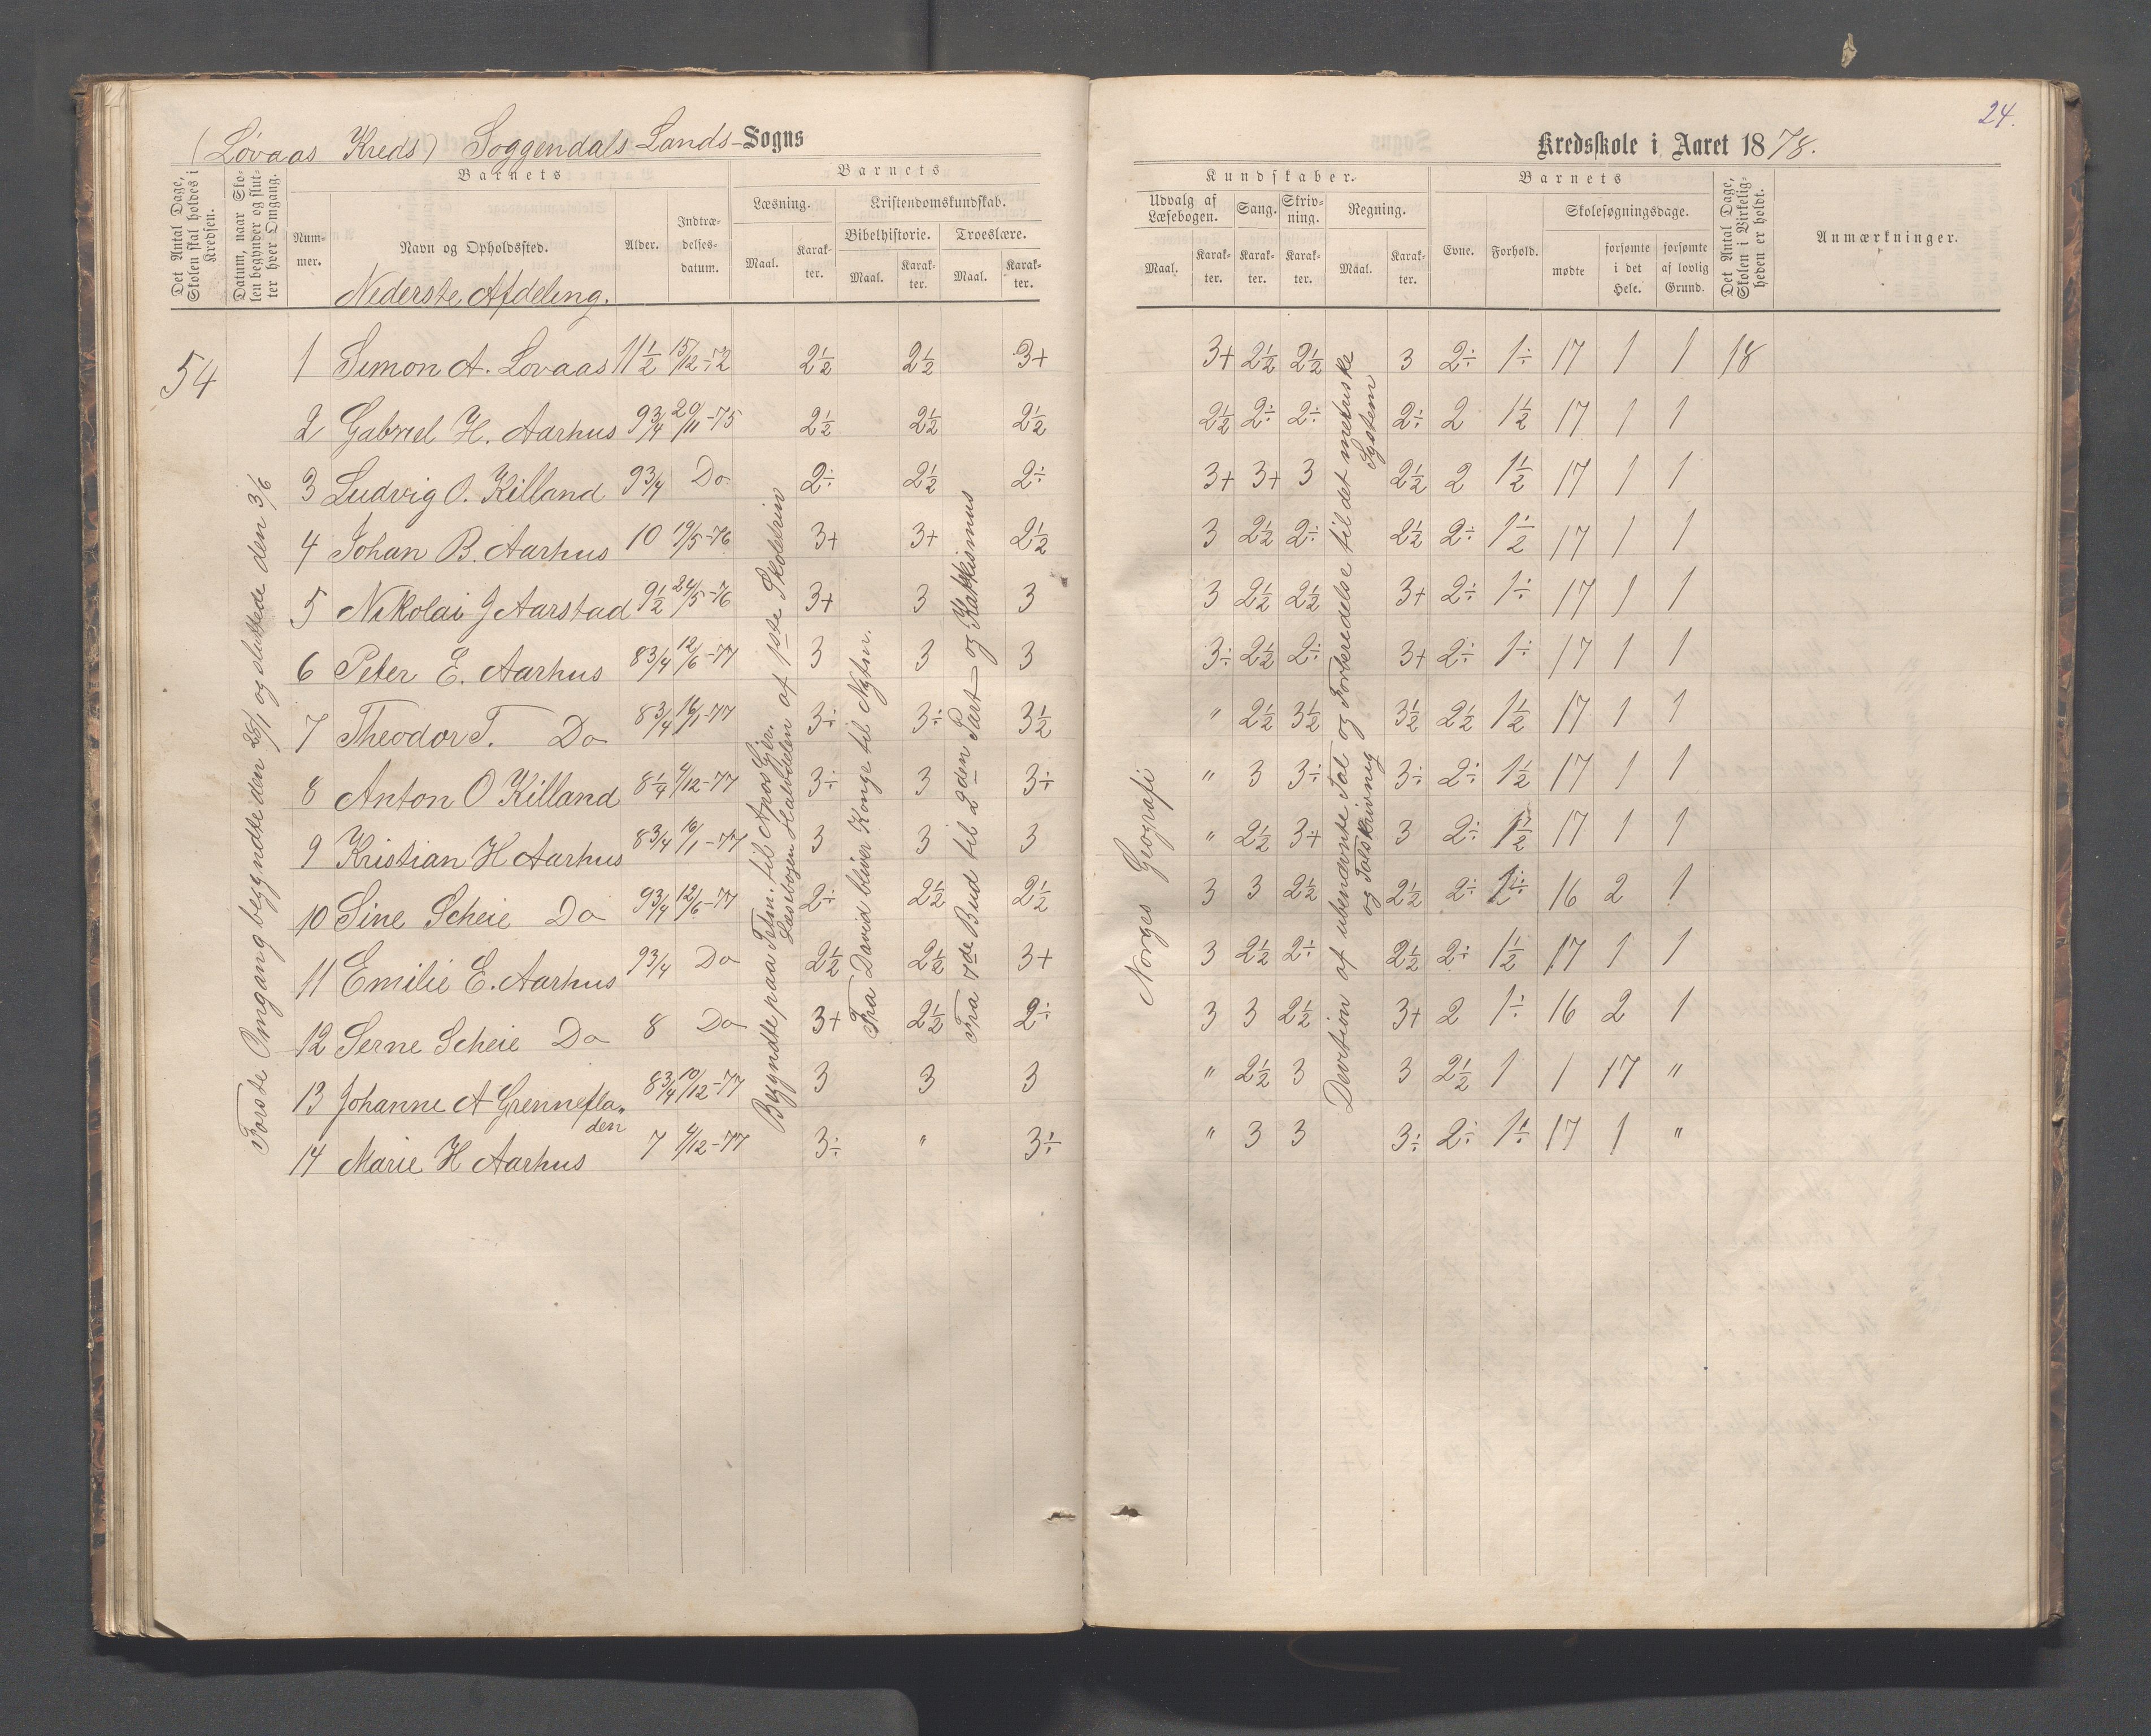 24.
(Lövaas Kreds) Soggendals Lands-Sogns
Kredsskole i Aaret 1878.
Det Antal Dage, Skolen skal holdes i Kredsen.
Datum, naar Skolen begynder og slutter hver Omgang.
Barnets
Nummer.
Navn og Opholdssted.
Alder.
Indtrædelsesdatum.
Nederste Afdeling.
Barnets
Læsning.
Maal.
Karakter.
Kristendomskundskab.
Bibelhistorie.
Maal.
Karakter.
Troeslære.
Maal.
Karakter.
Kundskaber.
Udvalg af Læsebogen.
Maal.
Karakter.
Sang.
Karakter.
Skrivning.
Karakter.
Regning.
Maal.
Karakter.
Barnets
Evne.
Forhold.
Skolesøgningsdage.
mødte
forsømte i det Hele.
forsømte af lovlig Grund.
Det Antal Dage, Skolen i Virkeligheden er holdt.
Anmærkninger.
54
Første Omgang begyndte den 28/1 og sluttede den 3/6
Begyndte paa Tilm. til Apos Gjer.
Læsebogen Halvdelen af 1ste Skoletrin
Fra David bliver Konge til Nytsn.
Fra 7de Bud til 2den Part og Katekismus
Norges Geografi
Divition af ubenævnte Tal og Forberedelse til det metriske System
og Talskrivning
1 Simon A. Lovaas 11½ 15/12-72 2½ 2½ 3+ 3+ 2½ 2½ 3 2÷ 1÷ 17 1 1 18
2 Gabriel H. Aarhus 9¾ 20/11-75 2½ 2½ 2½ 2½ 2÷ 2÷ 2÷ 2 1½ 17 1 1
3 Ludvig O. Killand 9¾ Do 2÷ 2½ 2÷ 3+ 3+ 3 2½ 2 1½ 17 1 1
4 Johan B. Aarhus 10 19/5-76 3+ 3+ 2½ 3 2½ 2÷ 2½ 2÷ 1½ 17 1 1
5 Nikolai J Aarstad 9½ 24/5-76 3+ 3 3 3 2½ 2½ 3+ 2÷ 1÷ 17 1 1
6 Peter E. Aarhus 8¾ 12/6-77 3 3 3 3÷ 2½ 2÷ 3+ 2÷ 1÷ 17 1 1
7 Theodor T. Do 8¾ 16/1-77 3÷ 3÷ 3½ " 2½ 3½ 3½ 2½ 1½ 17 1 1
8 Anton O Killand 8¼ 4/12-77 3÷ 3 3÷ " 3 3÷ 3÷ 2÷ 1½ 17 1 1
9 Kristian H Aarhus 8¾ 16/1-77 3 3 3 " 2½ 3+ 3 2÷ 1½ 17 1 1
10 Sine Scheie Do 9¾ 12/6-77 2÷ 2½ 2½ 3 3 2½ 2½ 2÷ 1÷ 16 2 1
11 Emilie E. Aarhus 9¾ Do 2½ 2½ 3+ 3 2½ 2÷ 2½ 2÷ 1½ 17 1 1
12 Serne Scheie Do 8 Do 3+ 2½ 2÷ 3 3 2½ 3+ 2 1÷ 16 2 1
13 Johanne A Grennefla„den 8¾ 10/12-77 3 3 3 " 2½ 3 3 2½ 1 1 17 "
14 Marie H Aarhus 7 4/12-77 3÷ " 3÷ " 3 3 3÷ 2÷ 1÷ 17 1 "